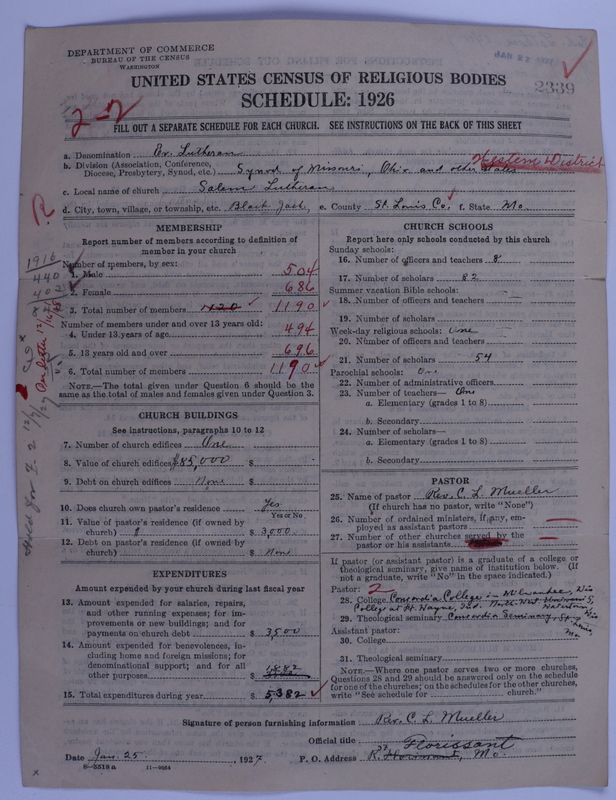 DEPARTMENT OF COMMERCE
BUREAU OF THE CENSUS
WASHINGTON
UNITED STATES CENSUS OF RELIGIOUS BODIES
SCHEDULE: 1926
2339
2-2
FILL OUT A SEPARATE SCHEDULE FOR EACH CHURCH. SEE INSTRUCTIONS ON THE BACK OF THIS SHEET
a. Denomination Ev. Lutheran
b. Division (Association, Conference, Diocese, Presbytery, Synod, etc.) Synod of Missouri, Ohio and other States Western District
c. Local name of church Salem Lutheran
d. City, town, village, or township, etc. Black Jack, e. County St. Louis Co. f. State Mo.
MEMBERSHIP
Report number of members according to definition of
member in your church
Number of members, by sex:
1. Male 504
2. Female 686
3. Total number of members 420 1190
Number of members under and over 13 years old:
4. Under 13 years of age 494
5. 13 years old and over 696
6. Total number of members 1190
NOTE.—The total given under Question 6 should be
same as the total of males and females given under Question 3.
1916
440
CHURCH BUILDINGS
See instructions, paragraphs 10 to 12
7. Number of church edifices One
8. Value of church edifices $85,000 $
9. Debt on church edifices None $
10. Does church own pastor's residence Yes
Yes or No
11. Value of pastor's residence (if owned by
church) $ 3,000
12. Debt on pastor's residence (if owned by
church) $ None
EXPENDITURES
Amount expended by your church during last fiscal year
13. Amount expended for salaries, repairs,
and other running expenses; for im-
provements or new buildings; and for
payments on church debt $ 3,500
14. Amount expended for benevolences, in-
cluding home and foreign missions; for
denominational support; and for all
other purposes $
15. Total expenditures during year $ 5,382
CHURCH SCHOOLS
Report here only schools conducted by this church
Sunday schools:
16. Number of officers and teachers 8
17. Number of scholars 82
Summer vacation Bible schools:
18. Number of officers and teachers
19. Number of scholars
Week-day religious schools: One
20. Number of officers and teachers
21. Number of scholars 54
Parochial schools:
22. Number of administrative officers
23. Number of teachers— One
a. Elementary (grades 1 to 8)
b. Secondary
24. Number of scholars—
a. Elementary (grades 1 to 8)
b. Secondary
PASTOR
25. Name of pastor Rev. C. L. Mueller
(If church has no pastor, write "None")
26. Number of ordained ministers, if any, em-
ployed as assistant pastors
27. Number of other churches served by the
pastor or his assistants
If pastor (or assistant pastor) is a graduate of a college or
theological seminary, give name of institution below. (If
not a graduate, write "No" in the space indicated.)
Pastor: 2
28. College Concordia College in Milwaukee, Wis
College at Ft. Wayne, Ind.
29. Theological seminary Concordia Seminary, St. Louis, Mo.
Assistant pastor:
30. College
31. Theological seminary
NOTE.—Where one pastor serves two or more churches,
Questions 28 and 29 should be answered only on the schedule
for one of the churches; on the schedules for the other churches,
write "See schedule for church."
Signature of person furnishing information Rev. C. L. Mueller
Official title
Florissant
Date Jan. 25, 1927 P. O. Address Mo.
8—5518a 11—9664